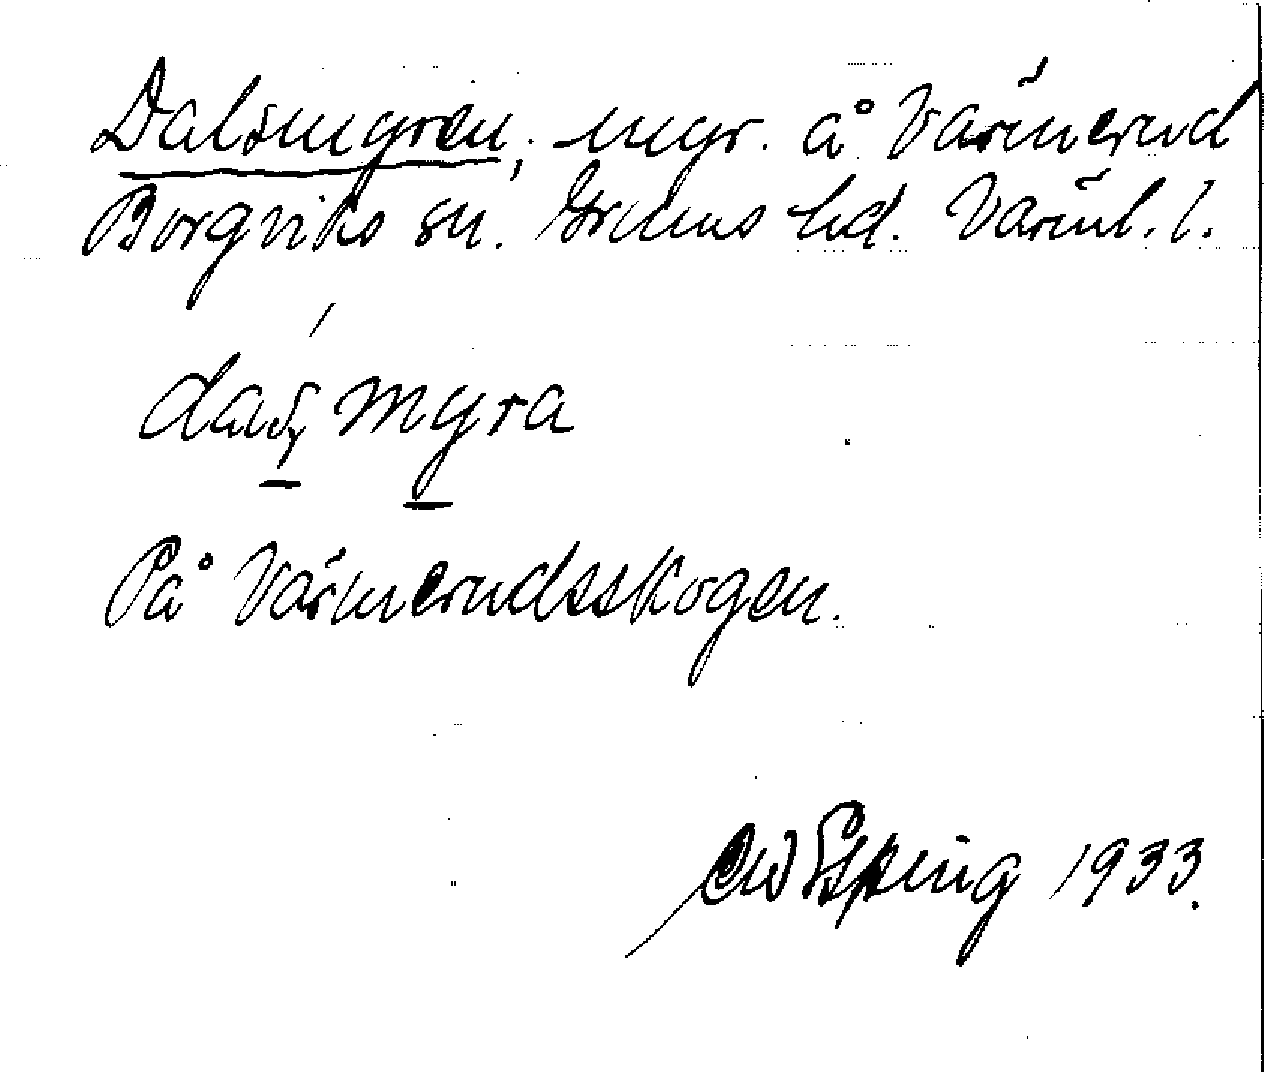 Dalsmyren, mgr. å Värmerud
Borgviks sn. Grums hd. Värml. l.
myra
På Värmerudsskogen.
1933.